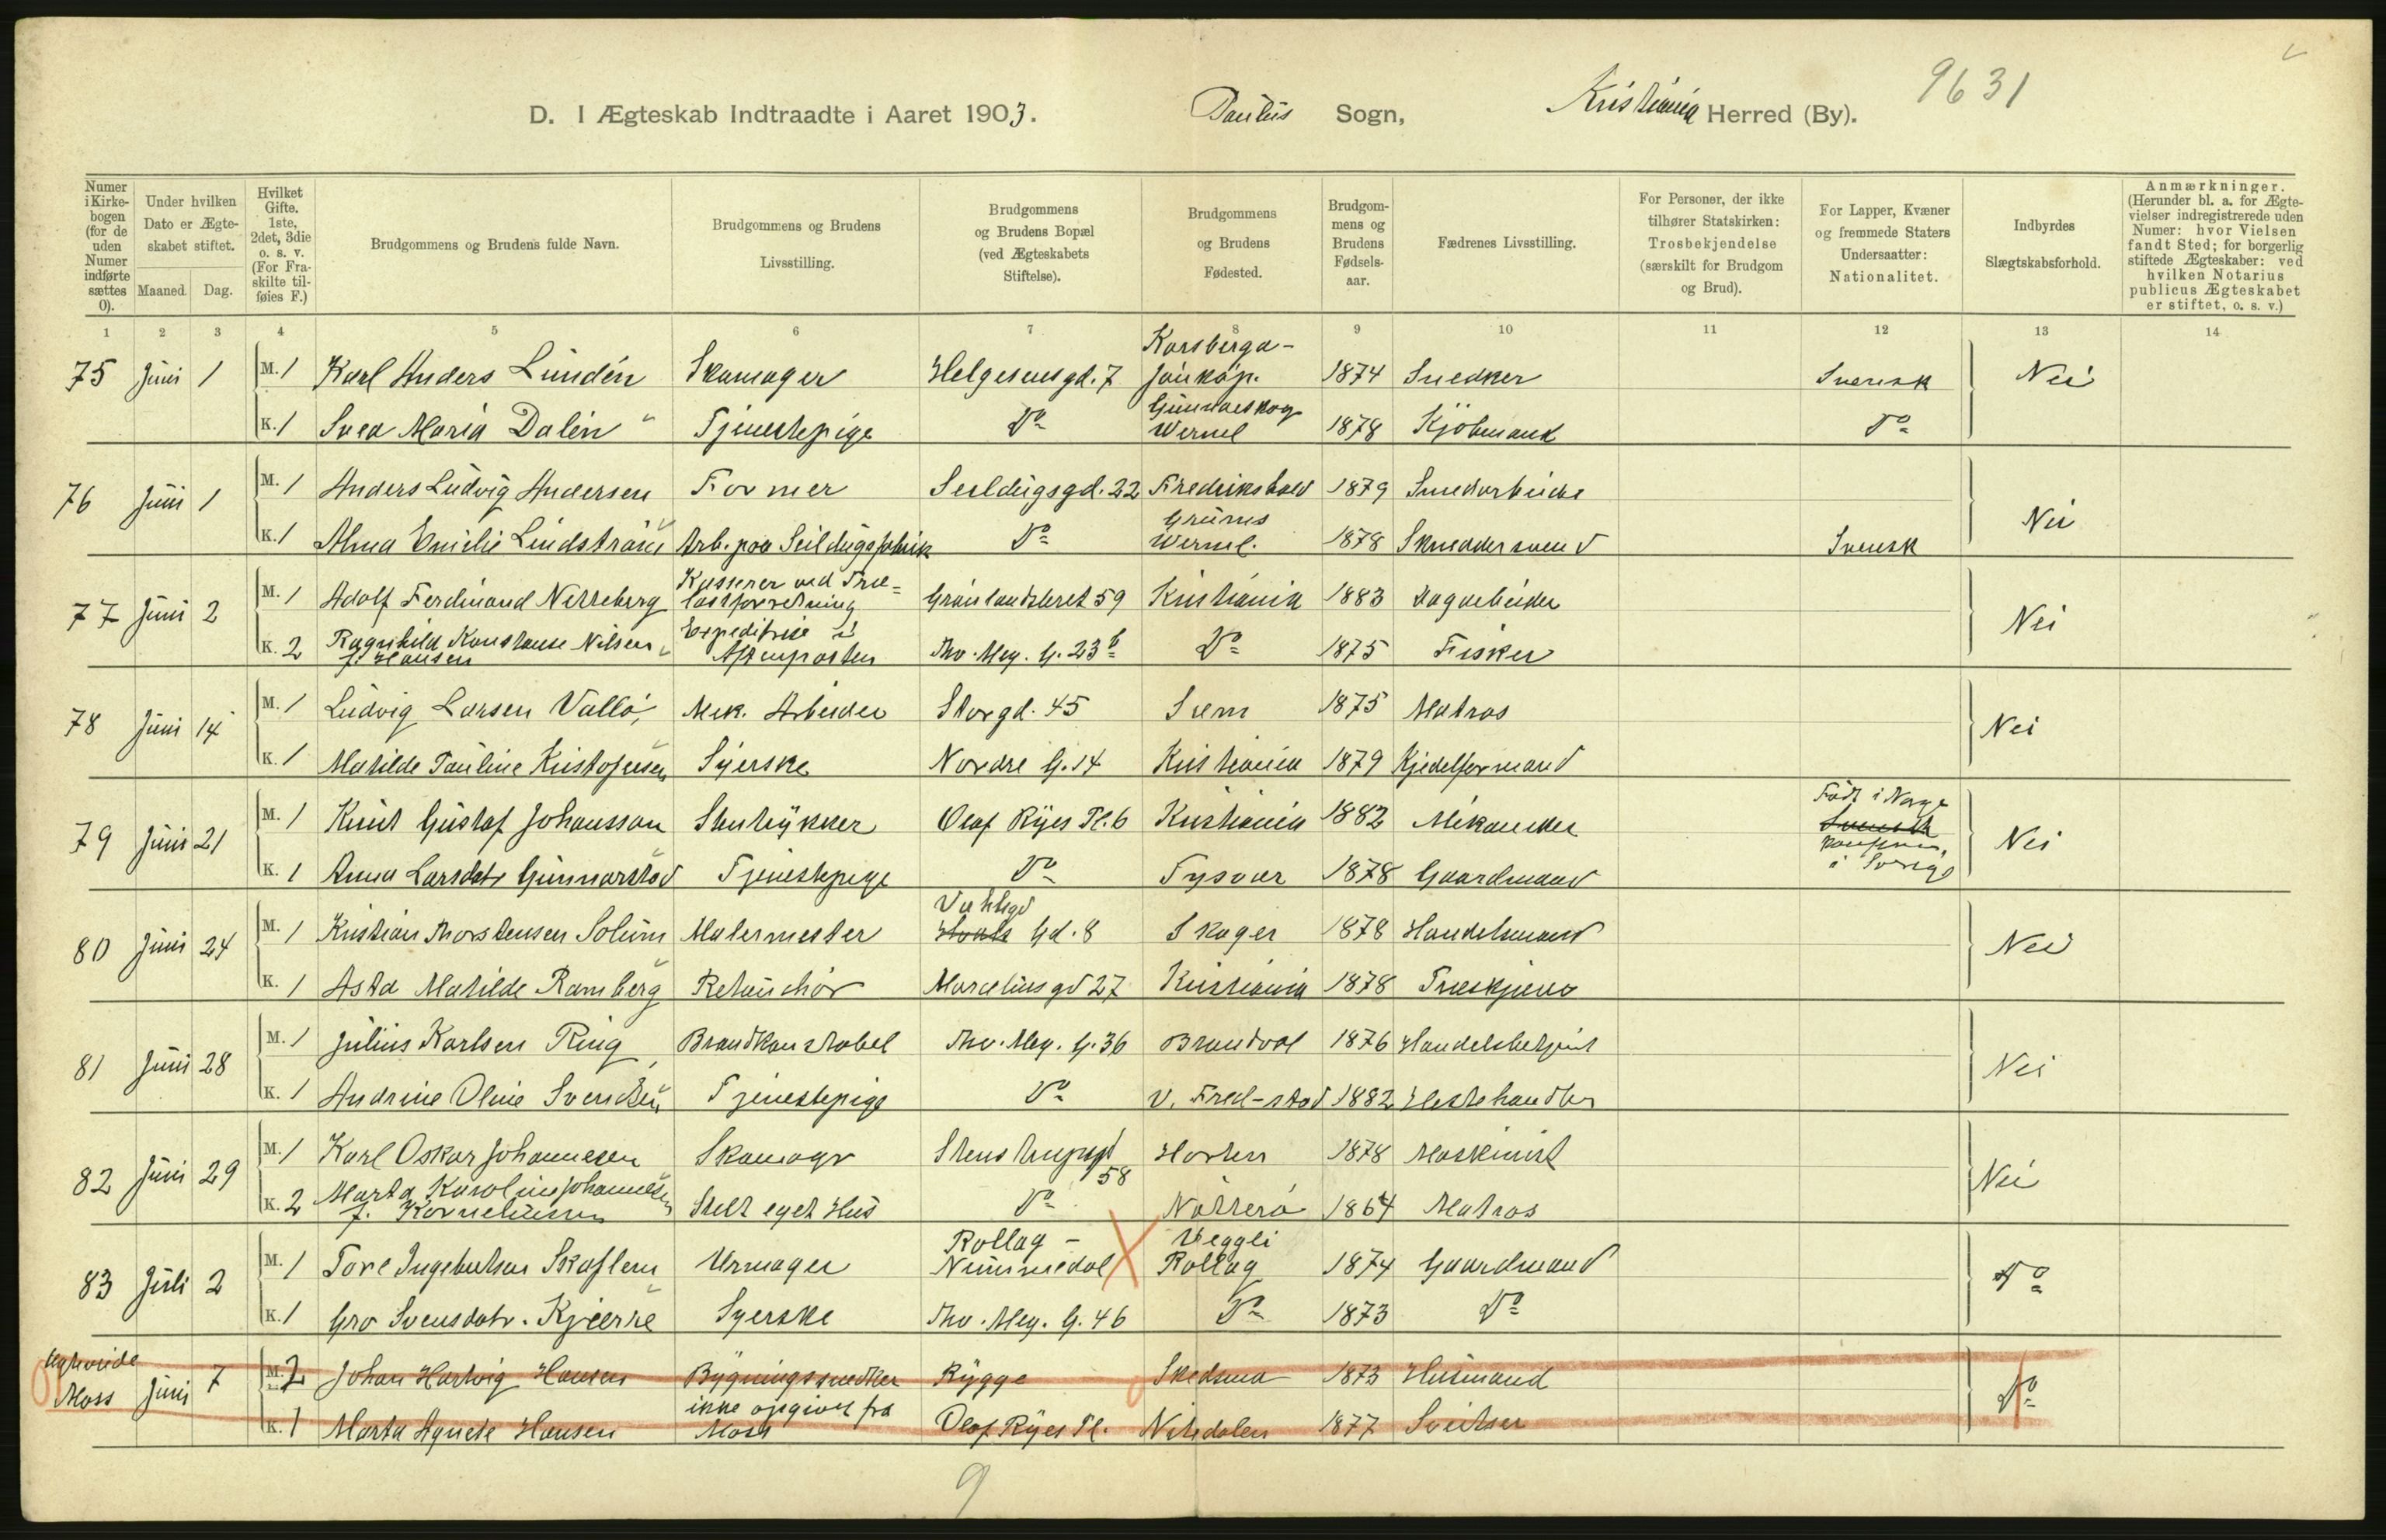 9631
D. I Ægteskab Indtraadte i Aaret 1903. Paulus Sogn, Kristiania Herred (By).
Numer i Kirkebogen (for de uden Numer indførte sættes 0).
Under hvilken Dato er Ægteskabet stiftet.
Maaned. Dag.
Hvilket Gifte. 1ste, 2det, 3die o. s. v. (For Fraskilte tilføies F.)
Brudgommens og Brudens fulde Navn.
Brudgommens og Brudens Livsstilling.
Brudgommens og Brudens Bopæl (ved Ægteskabets Stiftelse).
Brudgommens og Brudens Fødested.
Brudgommens og Brudens Fødselsaar.
Fædrenes Livsstilling.
For Personer, der ikke tilhører Statskirken: Trosbekjendelse (særskilt for Brudgom og Brud).
For Lapper, Kvæner og fremmede Staters Undersaatter: Nationalitet.
Indbyrdes Slægtskabsforhold.
Anmærkninger. (Herunder bl. a. for Ægtevielser indregistrerede uden Numer: hvor Vielsen fandt Sted; for borgerlig stiftede Ægteskaber: ved hvilken Notarius publicus Ægteskabet er stiftet, o. s. v.)
1 2 3 4 5 6 7 8 9 10 11 12 13 14
75 Juni 1 M. 1 Karl Anders Lindén Skomager Helgesensgd. 7 Karsberga- Jönköp. 1874 Snedker Svensk Nei
K. 1 Svea Maria Dalén Tjenestepige Do Gunnarskog Werml 1878 Kjöbmand Do
76 Juni 1 M. 1 Anders Ludvig Andersen Former Seildugsgd. 22 Fredrikshald 1879 Smedarbeider Nei
K. 1 Alma Emilie Lindström Arb. paa Seildugsfabrik Do Grums Werml. 1878 Skræddersvend Svensk
77 Juni 2 M. 1 Adolf Ferdinand Netteberg Kasserer ved Træ- lastforretning Grønlandsleret 59 Kristiania 1883 Dagarbeider Nei
K. 2 Ragnhild Konstanse Nilsen f. Hansen Expeditrise i Aftenposten Thv. Mey. G. 23b Do 1875 Fisker
78 Juni 14 M. 1 Ludvig Larsen Vallø Mek. Arbeider Storgd. 45 Sem 1875 Matros Nei
K. 1 Matilde Pauline Kristofersen Syerske Nordre G. 14 Kristiania 1879 Kjedelformand
79 Juni 21 M. 1 Knut Gustaf Johansson Stentrykker Olaf Ryes Pl. 6 Kristiania 1882 Mekaniker Født i Norge Svensk konfirm. i Sverige Nei
K. 1 Anna Larsdatr Gunnarstød Tjenestepige Do Tysvær 1878 Gaardmand
80 Juni 24 M. 1 Kristian Thorstensen Solum Malermester Vahlsgd Gd. 8 Skoger 1878 Handelsmand Nei
K. 1 Asta Matilde Ramberg Retouchör Marcelius gd 27 Kristiania 1878 Træskjærer
81 Juni 28 M. 1 Julius Karlsen Ring Brandkonstabel Thv. Mey. G. 36 Brandval 1876 Handelsbetjent Nei
K. 1 Andrine Oline Svendsen Tjenestepige Do V. Fred-stad 1882 Hestehandler
82 Juni 29 M. 1 Karl Oskar Johannesen Skomager Stenstrupsgd 58 Horten 1878 Maskinist Nei
K. 2 Marta Karoline Johannesen f. Korneliussen Stelt eget Hus Do Nøtterø 1864 Matros
83 Juli 2 M. 1 Tore Ingebretsen Skaflem Urmager Rollag - Nummedal Veggli Rollag 1874 Gaardmand Do
K. 1 Gro Svensdatr. Kjærre Syerske Thv. Mey. G. 46 Do 1873 Do
Moss Juni 7 M. 2 Johan Hartvig Hansen Bygningssnedker Rygge Skedsmo 1873 Husmand Do
K. 1 Marta Agnete Hansen ikke opgivet fra Moss Olaf Ryes Pl. Nitedalen 1877 Sveitser
9